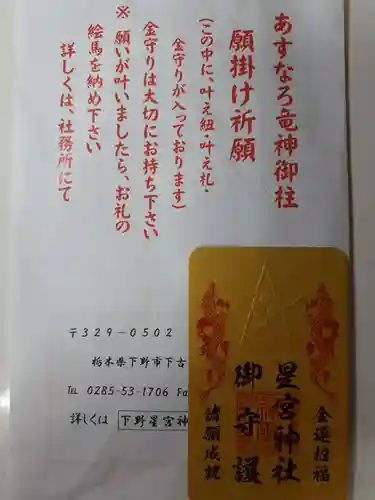 あすなろ竜神御柱
願掛け祈願
(この中に、叶え紐・叶え札・
金守りが入っております)
金守りは大切にお持ち下さい
※ 願いが叶いましたら、お礼の
絵馬を納め下さい
詳しくは、社務所にて
〒329-0502
栃木県下野市下古
℡ 0285-53-1706 Fa
詳しくは 下野星宮神
金運招福
星宮神社
御守護
諸願成就